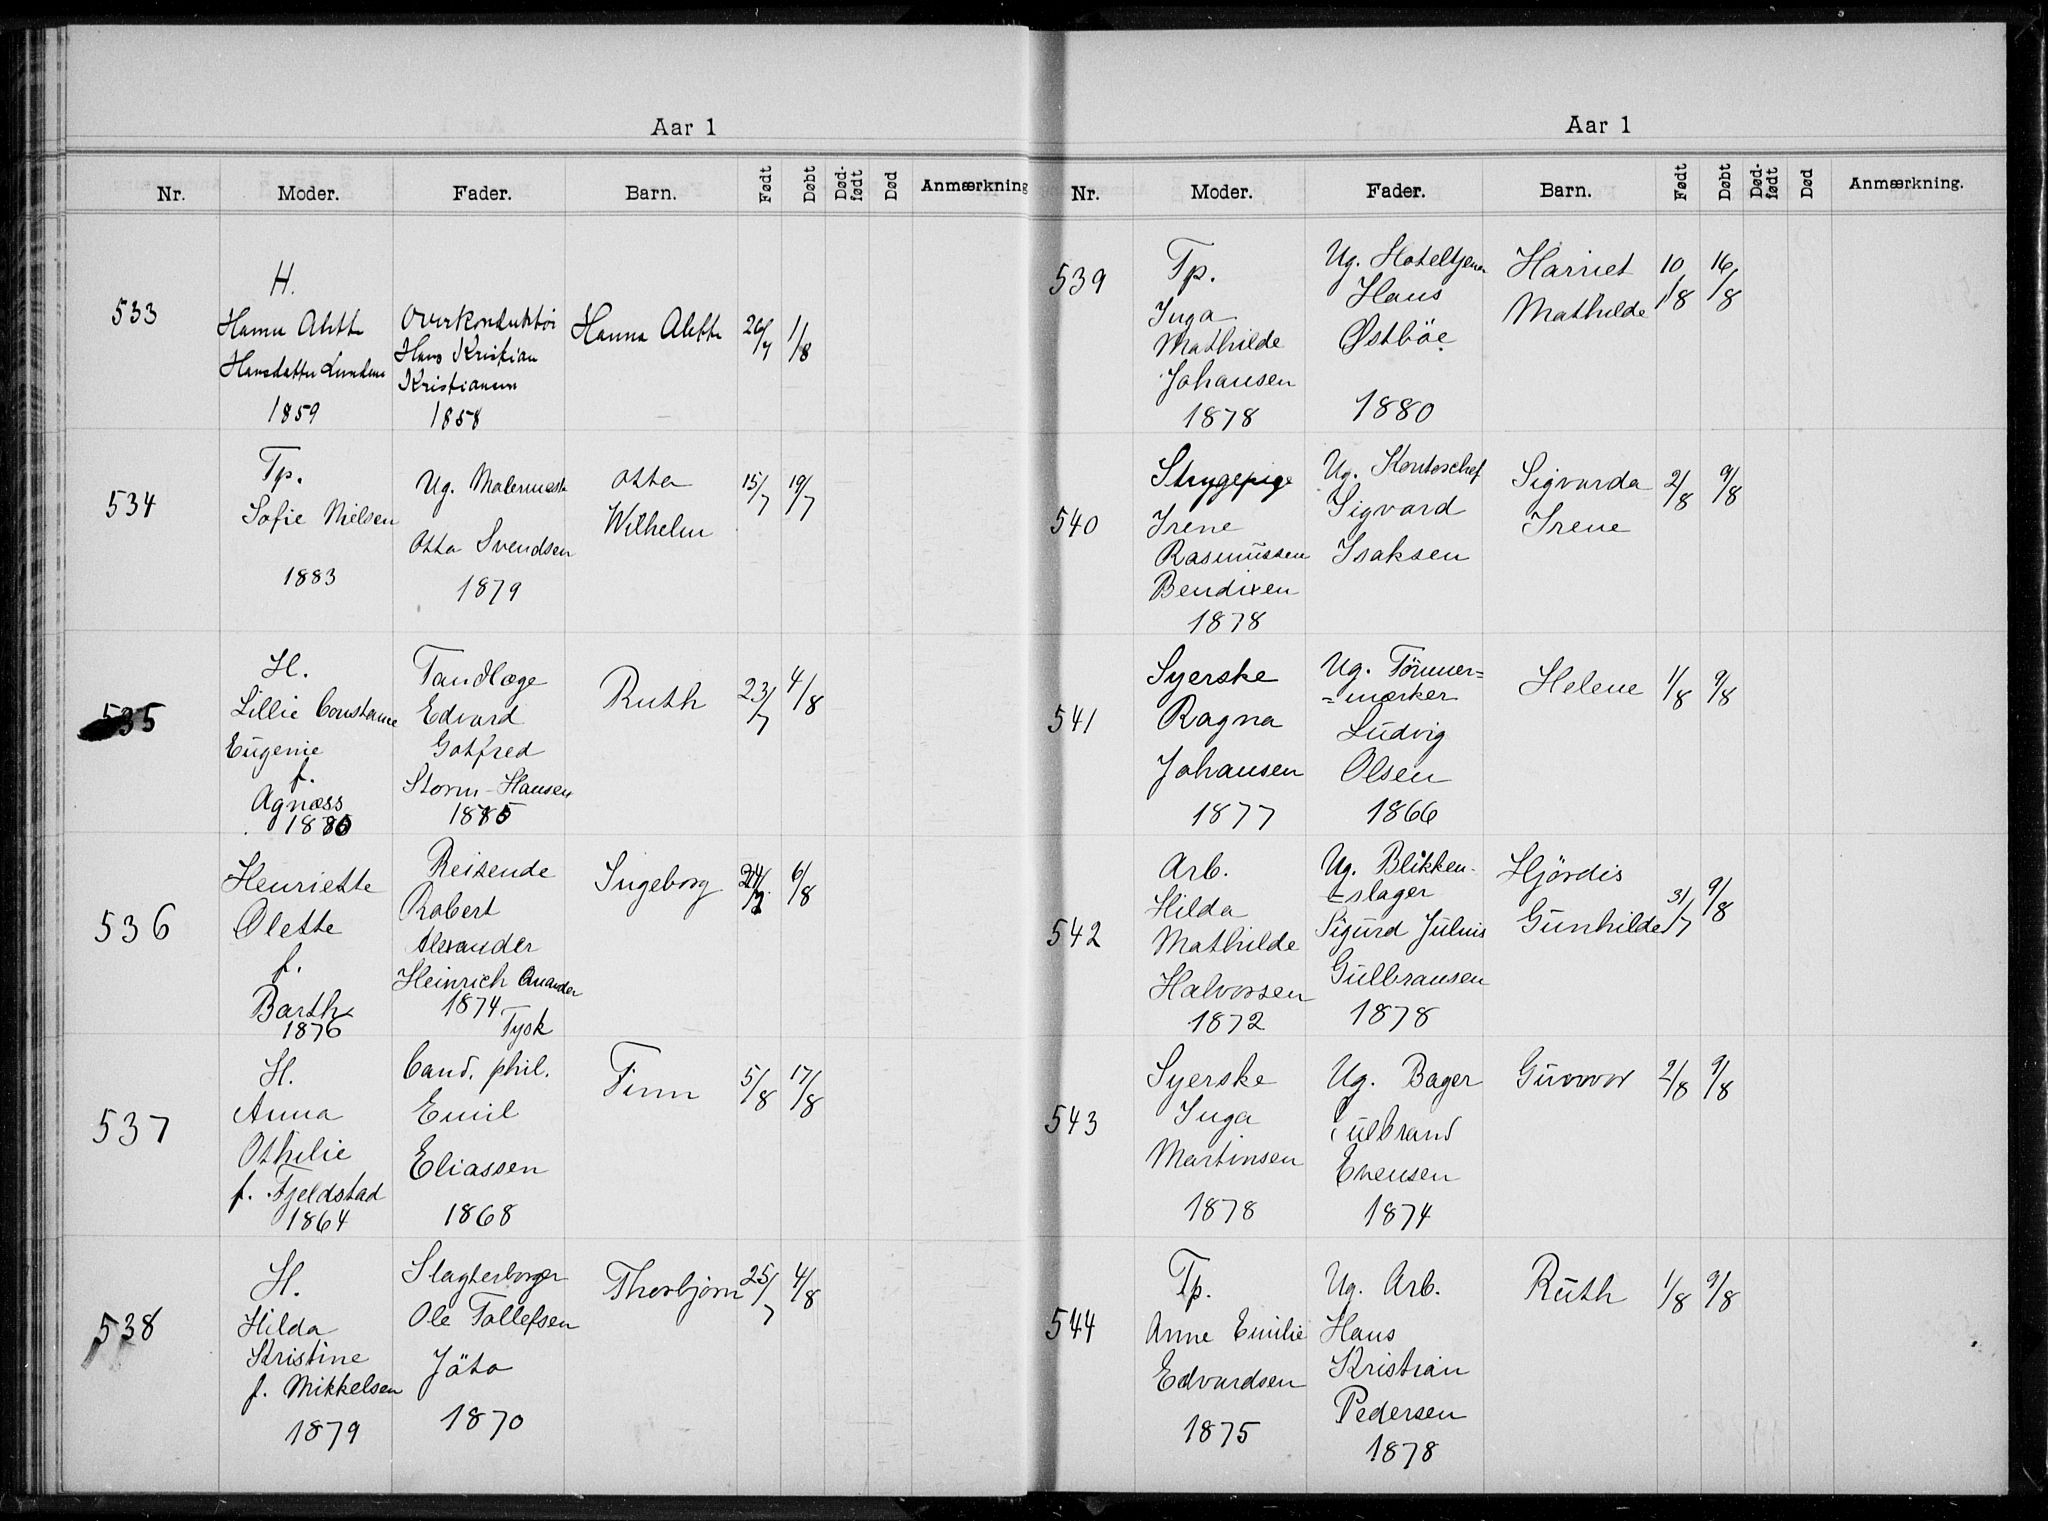 Aar 1
Nr. Moder. Fader. Barn. Født Døbt Død-født Død Anmærkning
533
H.
Hanna Alette
Hansdatter
1859
Overkonduktør
Hans Kristian
Kristiansen
1858
Hanna Alette
26/7
1/8
534
Tp.
Sofie Nielsen
1883
Ug. Malermestr
Otto Svendsen
1879
Otto
Wilhelm
15/7
19/7
535
H.
Lillie Constance
Eugenie
f.
Agnæss
Tandlæge
Edvard
Gotfred
Storm-Hansen
Ruth
23/7
4/8
536
Henriette
Olette
f.
Barth
1876
Reisende
Robert
Alexander
Heinrich
1874
Tysk
Ingeborg
6/8
537
H.
Anna
Othilie
f. Fjeldstad
1864
Cand. phil.
Emil
Eliassen
1868
Finn
5/8
17/8
538
H.
Hilda
Kristine
f. Mikkelsen
1879
Slagterborger
Ole Tollefsen
Jöto
1870
Thorbjørn
25/7
4/8
Aar 1
Nr. Moder. Fader. Barn. Født Døbt Død-født Død Anmærkning.
539
Tp.
Inga
Mathilde
Johansen
1878
Ug. Hoteltjener
Hans
Østböe
1880
Harriet
Mathilde
10/8
16/8
540
Strygepige
Irene
Rasmussen
Bendixen
1878
Ug. Kontorchef
Sigvard
Isaksen
Sigvarda
Irene
2/8
9/8
541
Syerske
Ragna
Johansen
1877
Ug. Tömmer=
=mærker
Ludvig
Olsen
1866
Helene
1/8
9/8
542
Arb.
Hilda
Mathilde
Halvorsen
1872
Ug. Blikken-
=slager
Sigurd Julius
Gulbransen
1878
Hjördis
Gunhilde
31/7
9/8
543
Syerske
Inga
Martinsen
1878
Ug. Bager
Gulbrand
Evensen
1874
Gunvor
2/8
9/8
544
Tp.
Anne Emilie
Edvardsen
1875
Ug. Arb.
Hans
Kristian
Pedersen
1878
Ruth
1/8
9/8